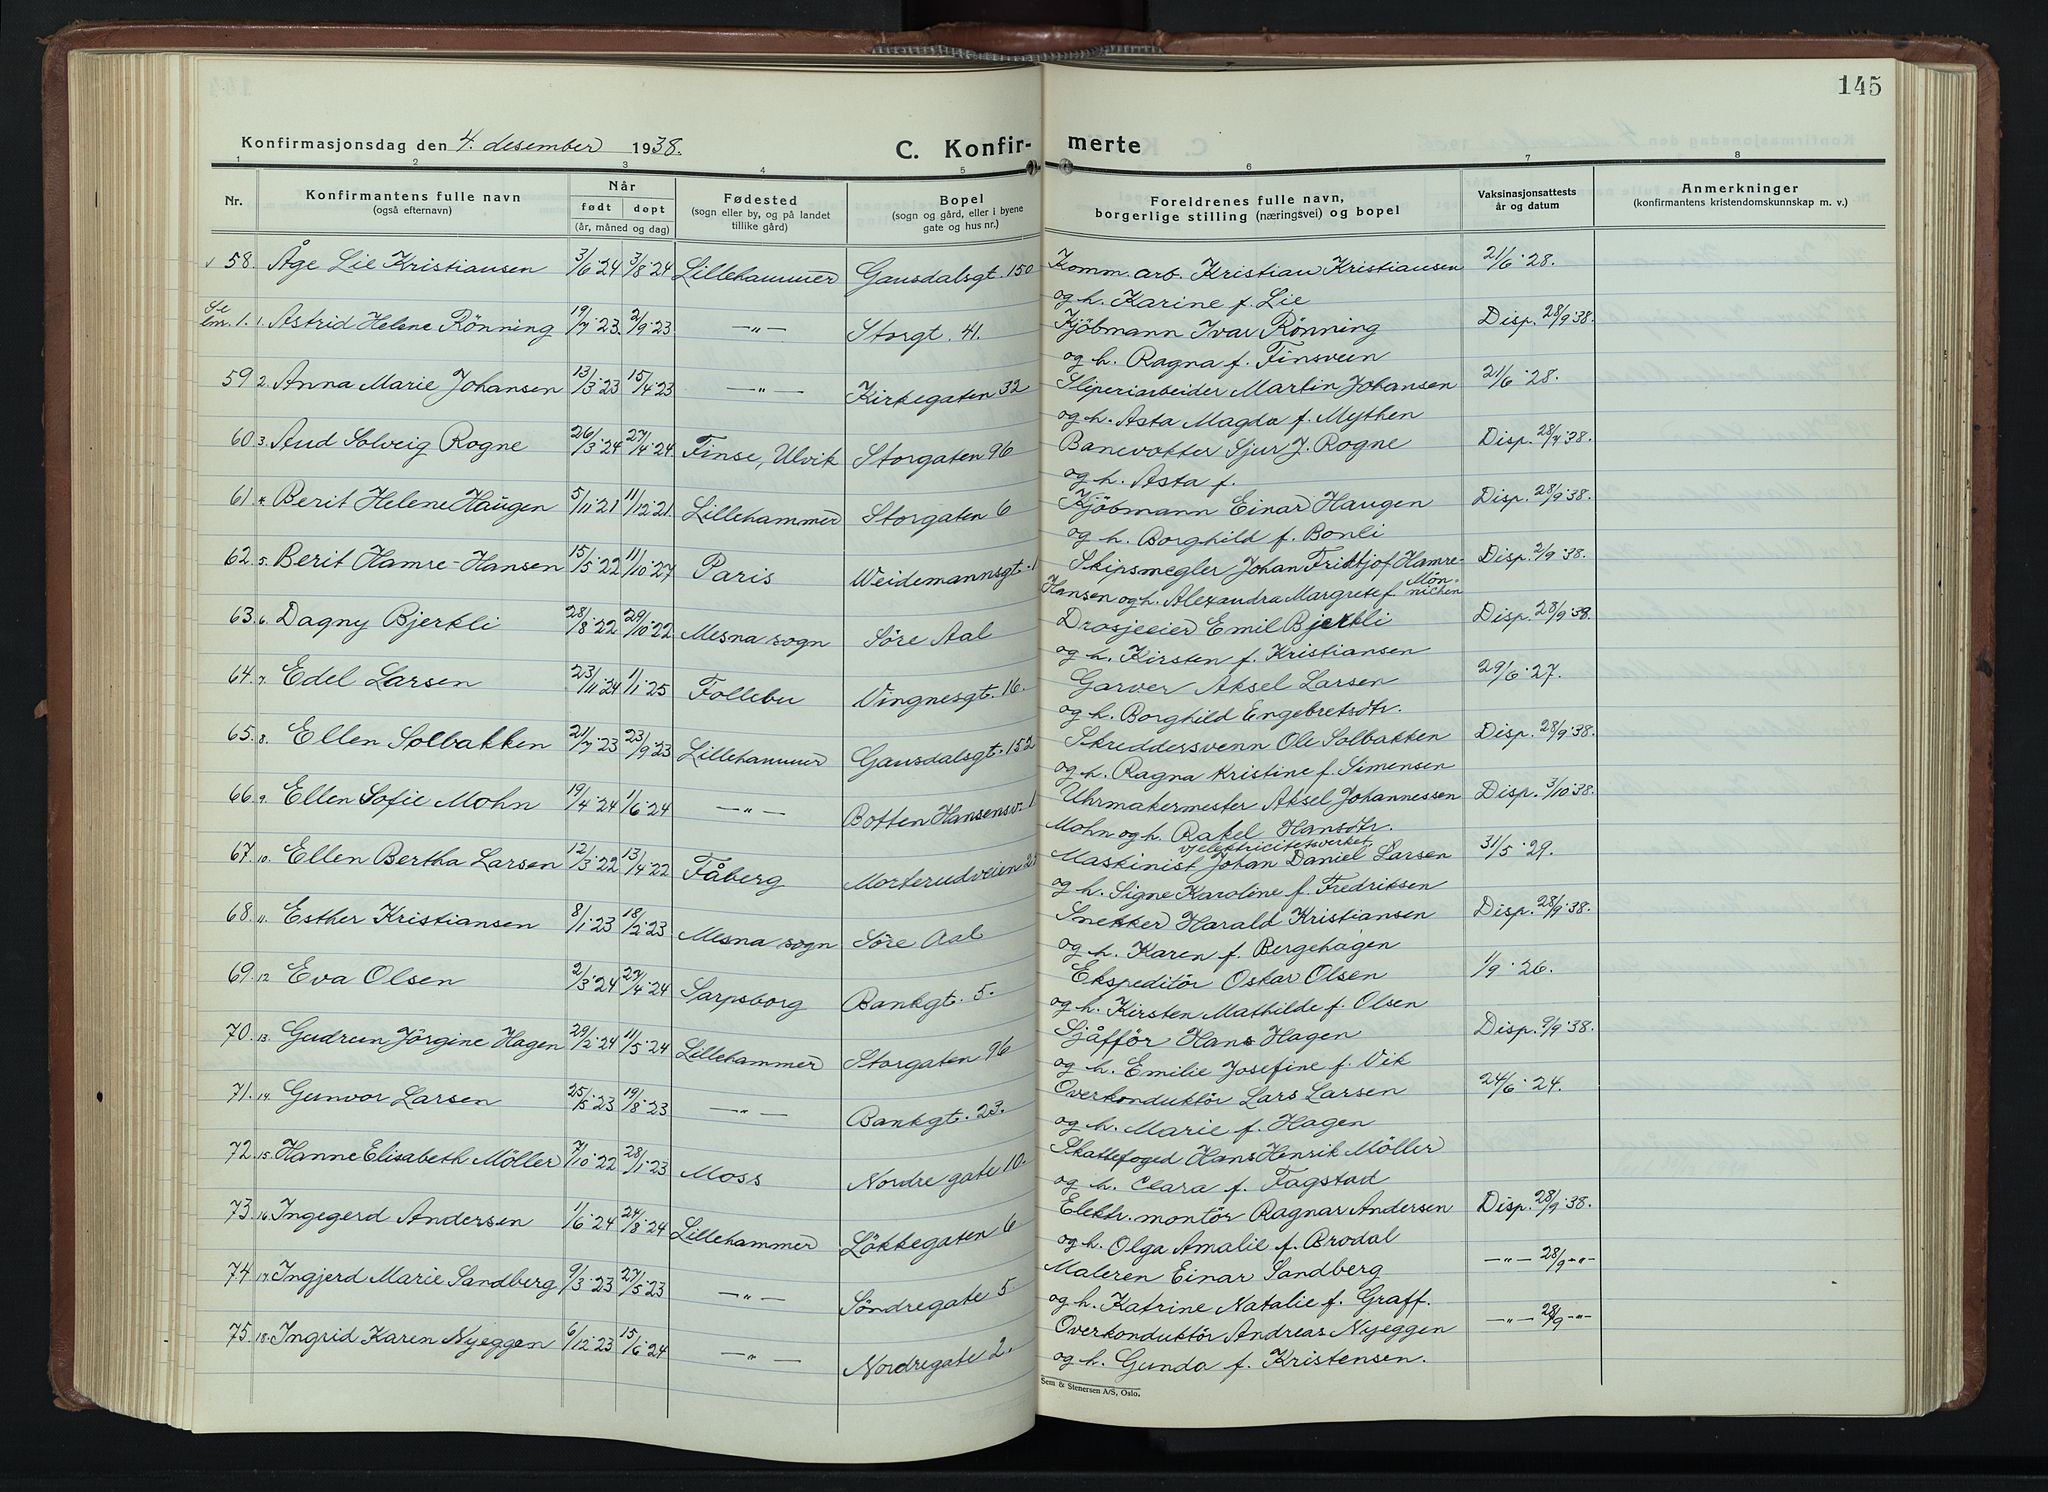 145
Konfirmasjonsdag den 4. desember 1938.
C. Konfir- merte
1 2 3 4 5 6 7 8
Nr. Konfirmantens fulle navn (også efternavn) Når født døpt (år, måned og dag) Fødested (sogn eller by, og på landet tillike gård) Bopel (sogn og gård, eller i byene gate og hus nr.) Foreldrenes fulle navn, borgerlige stilling (næringsvei) og bopel Vaksinasjonsattests år og datum Anmerkninger (konfirmantens kristendomskunnskap m. v.)
58. Åge Lie Kristiansen 3/6 24 3/8 24 Lillehammer Gausdalsgt. 150 Komm. arb. Kristian Kristiansen 21/6 28.
og h. Karine f. Lie
1. 1. Astrid Helene Rönning 19/7 23 2/9 23 —"— Storgt. 41. Kjöbmann Ivar Rönning Disp. 28/9 38.
og h. Ragna f. Finsveen
59 2. Anna Marie Johansen 13/3 23 15/4 23 —"— Kirkegaten 32 Sliperiarbeider Martin Johansen 21/6 28.
og h. Asta Magda f. Mythen
60. 3. Aud Solveig Rogne 26/3 24 27/4 24 Finse, Ulvik Storgaten 96 Banevokter Sjur J. Rogne Disp. 28/9 38.
og h. Asta f.
61. 4. Berit Helene Haugen 5/11 21 11/12 21 Lillehammer Storgaten 6 Kjöbmann Einar Haugen Disp. 28/9 38.
og h. Borghild f. Bonli
62. 5. Berit Hamre-Hansen 15/5 22 11/10 27 Paris Weidemannsgt. 1 Skipsmegler Johan Fridtjof Hamre- Disp. 2/9 38.
Hansen og h. Alexandra Margrete f. Mön-nichen
63. 6. Dagny Bjerkli 28/8 22 29/10 22 Mesna sogn Söre Aal Drosjeeier Emil Bjerkli Disp. 28/9 38.
og h. Kirsten f. Kristiansen
64. 7. Edel Larsen 23/11 24 1/1 25 Follebu Vingnesgt. 16. Garver Aksel Larsen 29/6 27.
og h. Borghild Engebretsdtr.
65. 8. Ellen Solbakken 21/7 23 23/9 23 Lillehammer Gausdalsgt. 152 Skreddersvenn Ole Solbakken Disp. 28/9 38.
og h. Ragna Kristine f. Simensen
66. 9. Ellen Sofie Mohn 19/4 24 1/6 24 —"— Botten Hansensv. 1 Uhrmakermester Aksel Johannessen Disp. 3/10 38.
Mohn og h. Rakel Hansdtr.
v/elektricitetsverket
67. 10. Ellen Bertha Larsen 12/3 22 13/4 22 Fåberg Morterudveien 25 Maskinist Johan Daniel Larsen 31/5 29.
og h. Signe Karoline f. Fredriksen
68. 11. Esther Kristiansen 8/1 23 18/2 23 Mesna sogn Söre Aal Snekker Harald Kristiansen Disp. 28/9 38.
og h. Karen f. Bergehagen
69. 12 Eva Olsen 2/3 24 27/4 24 Sarpsborg Bankgt. 5. Ekspeditör Oskar Olsen 1/9 26.
og h. Kirsten Mathilde f. Olsen
70. 13. Gudrun Jörgine Hagen 29/2 24 11/5 24 Lillehammer Storgaten 96 Sjåfför Hans Hagen Disp. 9/9 38.
og h. Emilie Josefine f. Vik
71. 14. Gunvor Larsen 25/5 23 19/8 23 —"— Bankgt. 23. Overkonduktör Lars Larsen 24/6 24.
og h. Marie f. Hagen
72. 15. Hanne Elisabeth Möller 7/10 22 28/1 23 Moss Nordre gate 10. Skattefoged Hans Henrik Möller
og h. Clara f. Fagstad
73. 16. Ingegerd Andersen 1/6 24 24/8 24 Lillehammer Lökkegaten 6 Elektr. montör Ragnar Andersen Disp. 28/9 38.
og h. Olga Amalie f. Brodal
74 17. Ingjerd Marie Sandberg 9/3 23 27/5 23 —"— Söndregate 5. Maleren Einar Sandberg —"— 28/9 -"-
og h. Katrine Natalie f. Graff.
75. 18. Ingrid Karen Nyeggen 6/12 23 15/6 24 —"— Nordregate 2. Overkonduktör Andreas Nyeggen —"— 28/9 -"-
og h. Gunda f. Kristensen.
Sem & Stenersen A/S, Oslo.